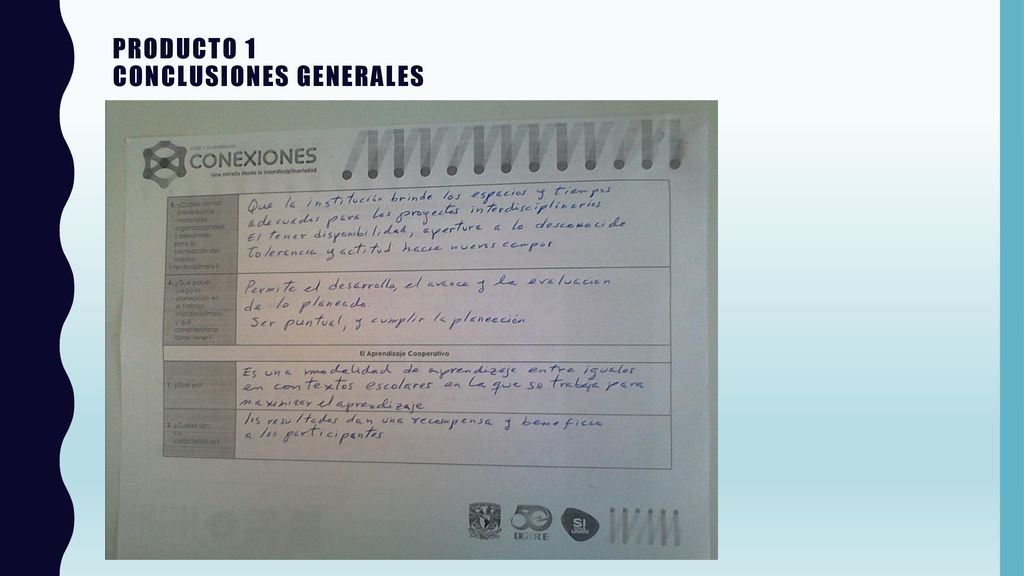 PRODUCTO 1
CONCLUSIONES GENERALES
CONEXIONES
Una mirada desde la interdisciplinariedad
5. ¿Cuáles son los
prerrequisitos
materiales,
organizacionales
y personales
para la
planeación del
trabajo
interdisciplinario?
Que la institución brinde los espacios y tiempos
adecuados para los proyectos interdisciplinarios
El tener disponibilidad, apertura a lo desconocido
tolerancia y actitud hacia nuevos campos.
6. ¿Qué papel
juega la
planeación en
el trabajo
interdisciplinario
y qué
características
debe tener?
Permite el desarrollo, el avance y la evaluación
de lo planeado.
Ser puntual, y cumplir la planeación
El Aprendizaje Cooperativo
1. ¿Qué es?
Es una modalidad de aprendizaje entre iguales
en contextos escolares en la que se trabaja para
maximizar el aprendizaje
2. ¿Cuáles son
sus
características?
los resultados dan una recompensa y beneficio
a los participantes
50
DGIRE
SI